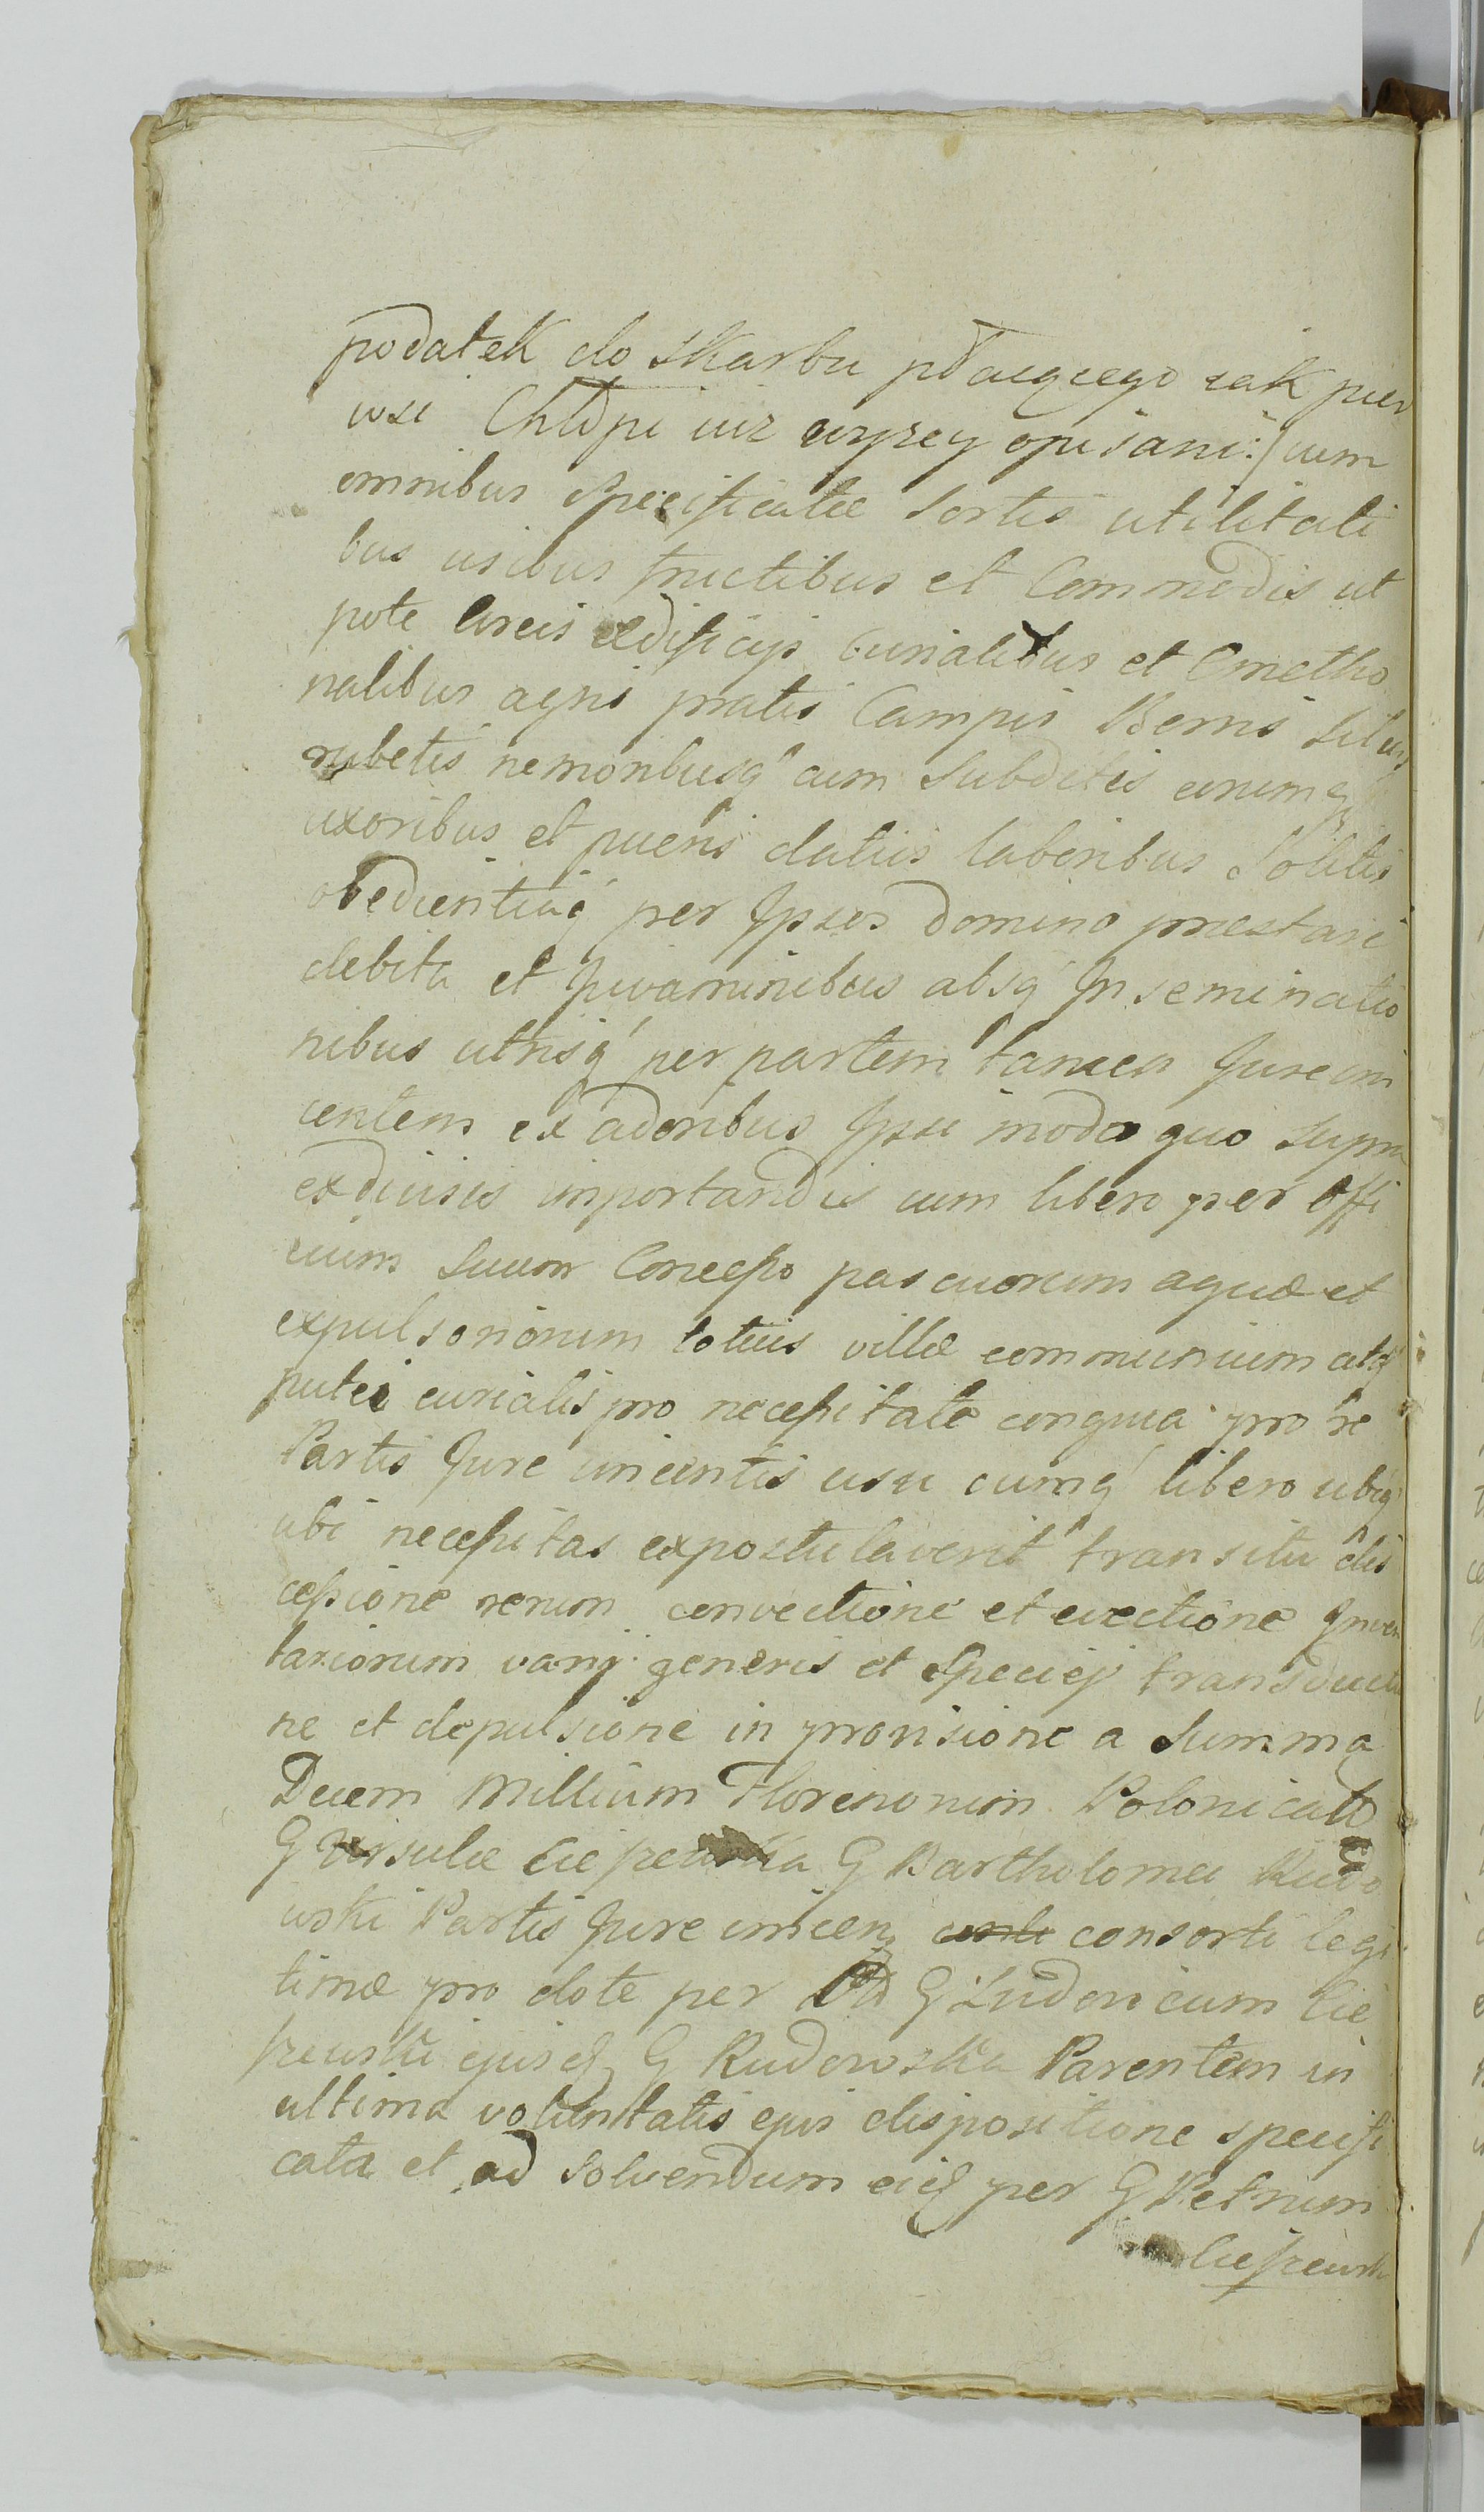 podatek do skarbu płacącego iak pier
wsi Chłopi iuż wyzey opisani:/ cum
omnibus specificatæ Sortis utilitati
bus usibus fructibus et Commodis ut
pote areis ædificijs Curialibus et Cmetho
nalibus agris pratis Campis Borris silvis
rubetis nemoribusq' cum Subditis eorumq
uxoribus et pueris datiis laboribus Solitis
obedientiaq' per Ipsos domino præstari
debita et Juvaminibus absq' Inseminatio
nibus utrisq' per partem tamen Jure vin
centem ex adoribus Ipsi modo quo supra
exdivisis importandis cum libero per Offi
cium Suum Concesso pascuorum aquæ et
expulsoriorum totius villæ communium atq'
putei curialis pro necessitate congrua pro re
Partis Jure vincentis usu cumq' libero ubiq'
ubi necessitas expostulaverit transitu dis
cessione rerum convectione et evectione Inven
tariorum varij generis et Speciej transductio
ne et depulsione in provisione a Summa
Decem Millium Florenorum Polonicali
G Ursulæ Ciepr G Bartholomei Rudo
wski Partis Jure vincen consorti legi
timæ pro dote per G Ludovicum Cie
ejusd G Rudowska Parentem in
ultima voluntatis ejus dispositione specifi
cata et ad solvendum eid per G Petrum